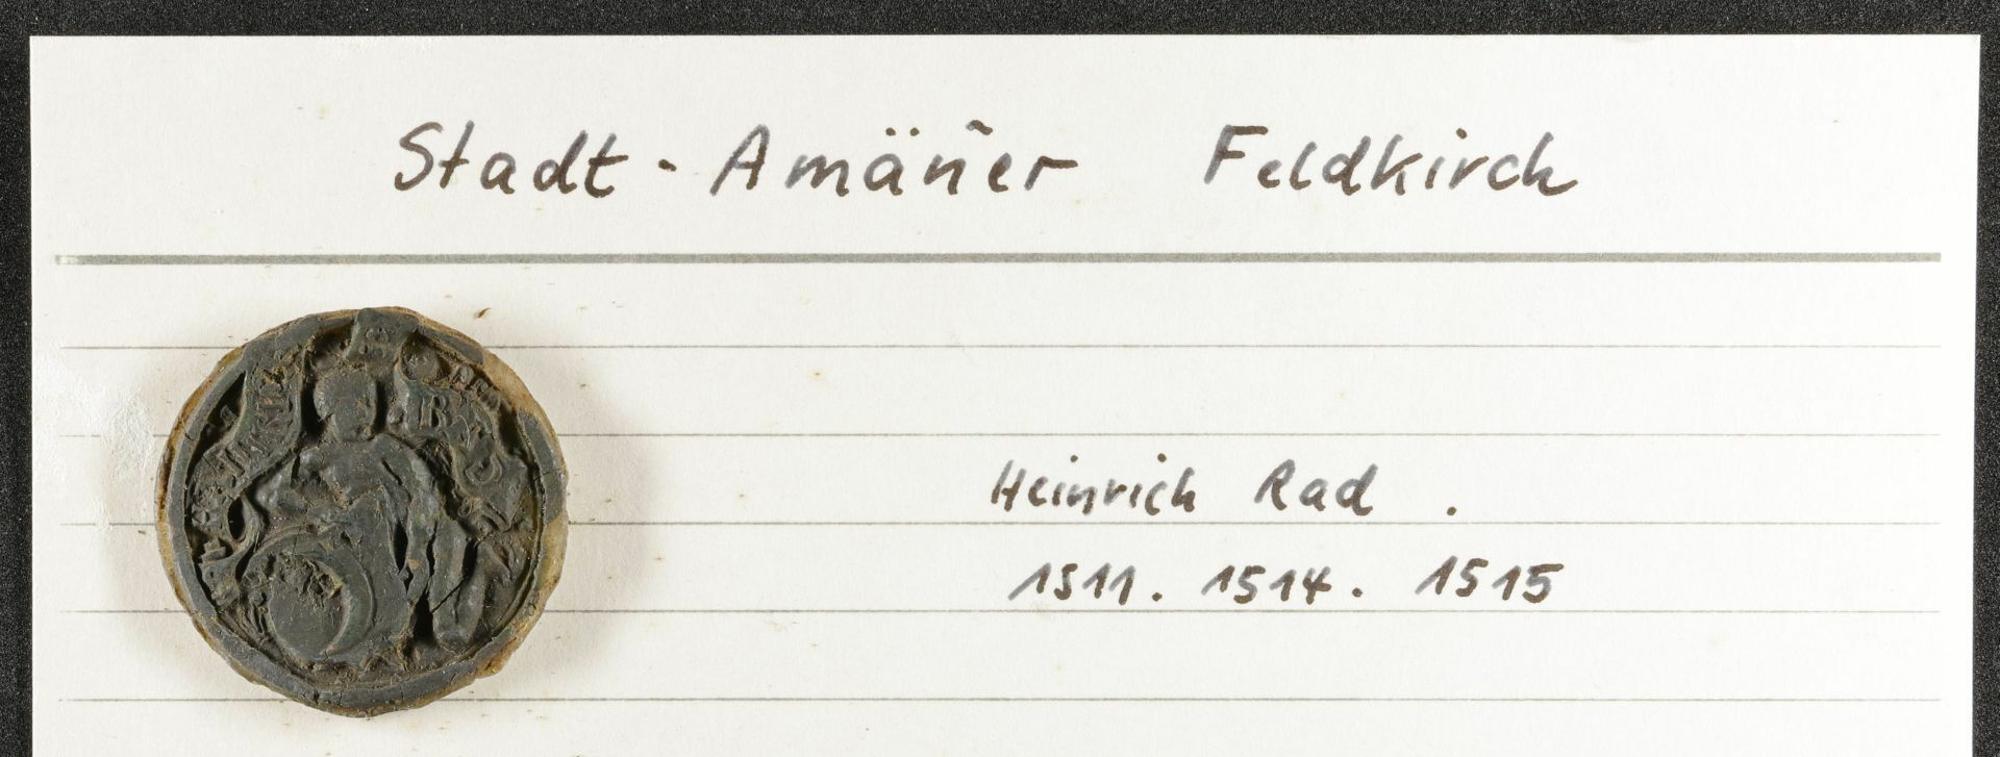 Stadt - Amän̄er Feldkirch
Heinrich Rad .
1511. 1514. 1515